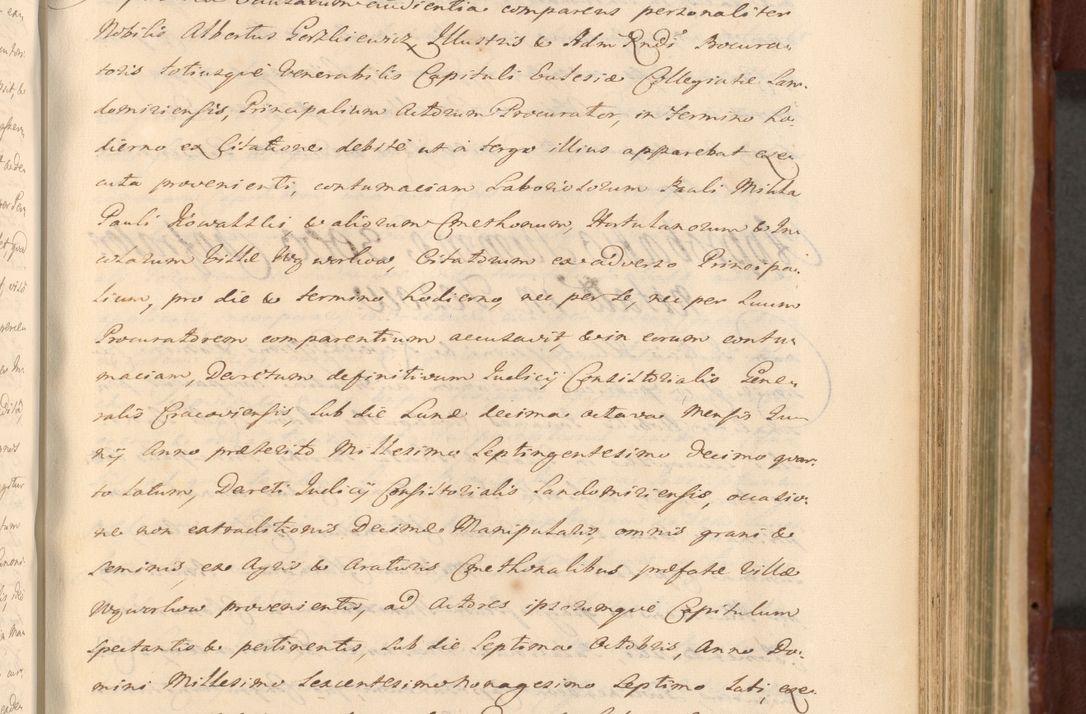 Causarum audientia comparens personaliter
Nobilis Albertus Gerzkiewicz Illustris & Adm Rndi Procura-
toris totiusque Venerabilis Capituli Ecclesiæ Collegiatæ San-
domiriensis, Principalium Actorum Procurator, in Termino ho-
dierno ex Citatione debité ut à tergo illius apparebat exe-
cuta provenienti, contumaciam Laboriosorum Pauli Mikla
Pauli Kowalski & aliorum Cmethonum, Hortulanorum & In-
colarum Villæ Wywarkow, Citatorum ex adverso Principa-
lium, pro die & termino hodierno, nec per se, nec per suum
Procuratorem comparentium accusavit, & in eorum contu-
maciam, Decretum definitivum Iudicij Consistorialis Gene-
ralis Cracoviensis, sub die Lunæ decima octava Mensis Iu-
nij Anno præterito Millesimo Septingentesimo Decimo quar-
to latum, Decreti Iudicij Consistorialis Sandomiriensis, occasio-
ne non extraditionis Decimæ Manipularis omnis grani &
seminis, ex Agris & Araturis Cmethonalibus præfatæ Villæ
Wywarkow provenientis, ad Actores ipsorumque Capitulum
spectantis & pertinentis, sub die Septima Octobris, Anno Do-
mini Millesimo Sexcentesimo Nonagesimo Septimo lati, exe-